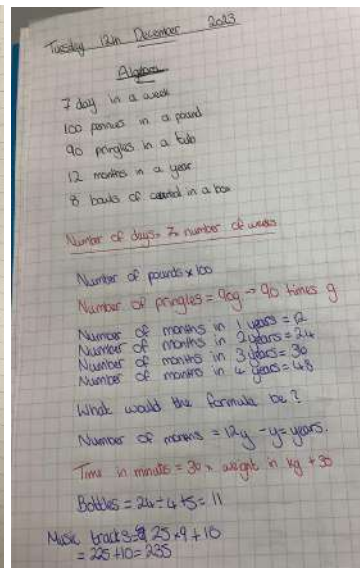 Tuesday 12th December 2023
Algebra
7 day in a week
100 pennies in a pound
90 pringles in a tub
12 months in a year
8 bowls of cereal in a box
Number of days = 7 x number of weeks
Number of pounds x 100
Number of pringles = 90g → 90 times g
Number of months in 1 years = 12
Number of months in 2 years = 24
Number of months in 3 years = 36
Number of months in 4 years = 48
What would the formula be?
Number of months = 12y - y = years.
Time in minutes = 30 x weight in kg + 30
Bottles = 24 ÷ 4 + 5 = 11
Music tracks = 25 x 9 + 10
= 225 + 10 = 235